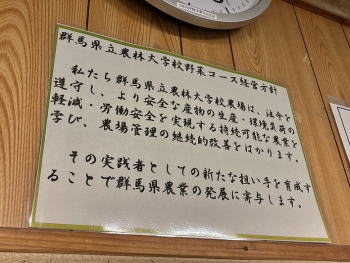 群馬県立農林大学校野菜コース経営方針
私たち群馬県立農林大学校農場は、法令を
遵守し、より安全な産物の生産・環境負荷の
軽減・労働安全を実現する持続可能な農業を
学び、農場管理の継続的改善をはかります。
その実践者としての新たな担い手を育成す
ることで群馬県農業の発展に寄与します。